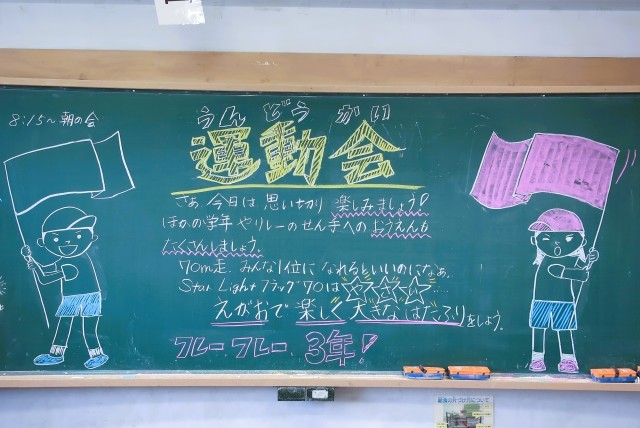 8:15～朝の会
うんどうかい
運動会
さぁ 今日は 思いっきり 楽しみましょう!
ほかの学年やリレーのせん手へのおうえんも
たくさんしましょう。
70m走、みんな1位になれるといいのになぁ。
Star Light フラッグ 70は
えがおで 楽しく 大きなはたふりをしよう。
フレー フレー 3年!